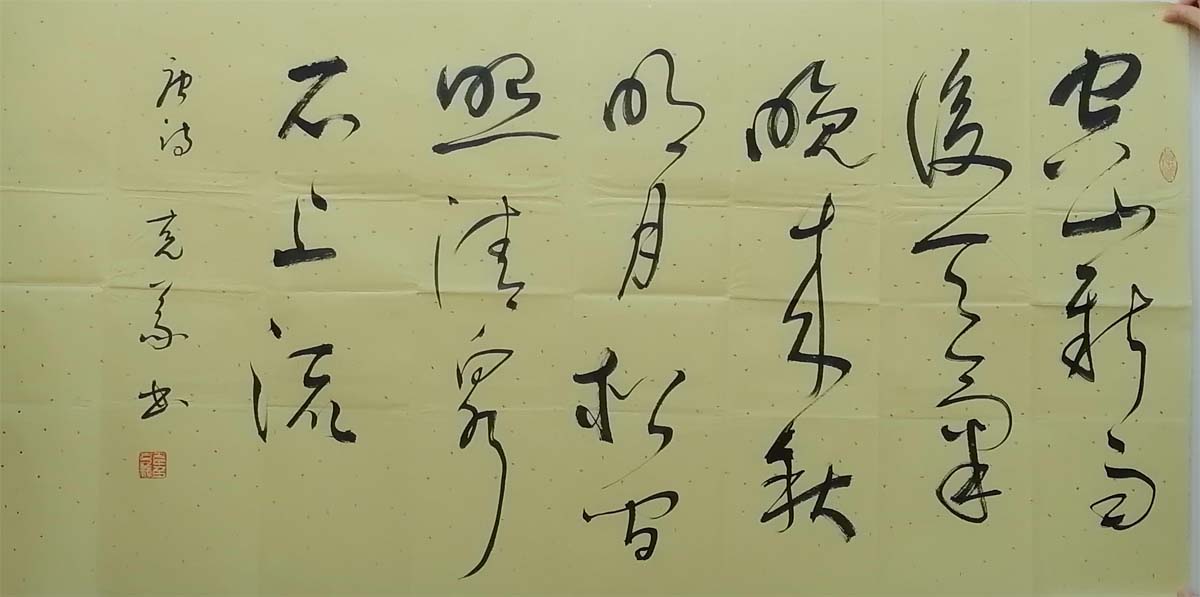 空山新雨
後天氣
晚来秋
明月松间
照清泉
石上流
唐诗 克義书